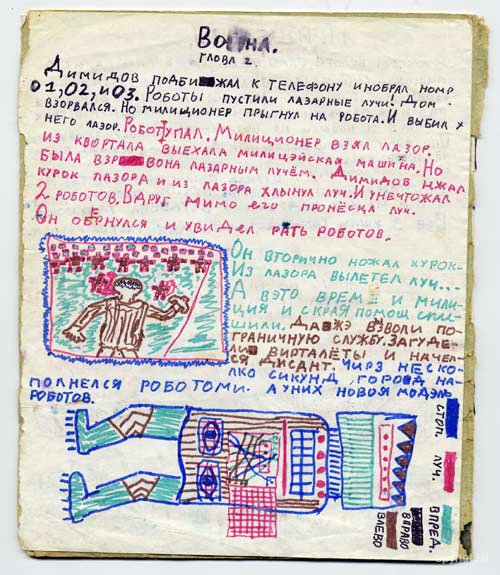 Война.
глова 2.
Димидов подбижал к телефону инобрал номр
01,02, и 03. Роботы пустили лазарные лучи! Дом
взорвался. Но милиционер прыгнул на робота. И выбил у
него лазор. Робот упал. Милиционер взял лазор.
из квортала выехала милицэйская машина. Но
была взр вона лазарным лучём. Димидов нжал
курок лазора и из лазора хлынул луч. И унечтожал
2 роботов. Вдруг мимо его пронёсца луч.
Он обернулся и увидел рать роботов.
Он вторично ножал курок-
Из лазора вылетел луч...
А вэто време и мили-
ция и скрая помощ спи-
шили. Давжэ взволи по-
граничную службу. Загуде-
ли вирталёты и начел-
ся дисант. Чирз неско-
лко сикунд, город на-
полнелся роботоми. А у них новоя модэль
роботов.
стоп.
луч.
впред.
вправо
влево